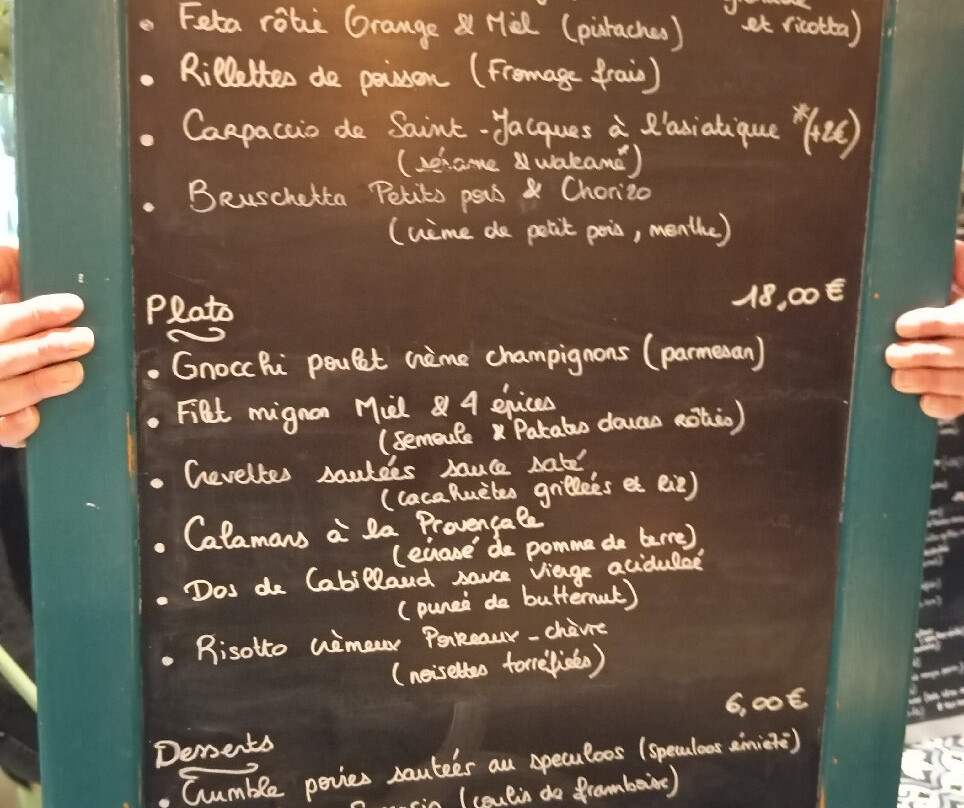 Feta rôtie Orange & Miel (pistaches) et ricotta)
Rillettes de poisson (Fromage frais)
Carpaccio de Saint-Jacques à l'asiatique *(+2€)
(sésame & wakamé*)
Bruschetta Petits pois & Chorizo
(crème de petit pois, menthe)
Plats 18,00 €
Gnocchi poulet crème champignons (parmesan)
Filet mignon Miel & 4 épices
(semoule & Patates douces rôties)
Crevettes sautées sauce saté
(cacahuètes grillées et riz)
Calamars à la Provençale
(écrasé de pomme de terre)
Dos de Cabillaud sauce vierge acidulée
(purée de butternut)
Risotto crèmeux Poireaux - chèvre
(noisettes torréfiées)
6,00 €
Desserts
Crumble poires sautées au speculoos (speculoos émietté)
(coulis de framboise)